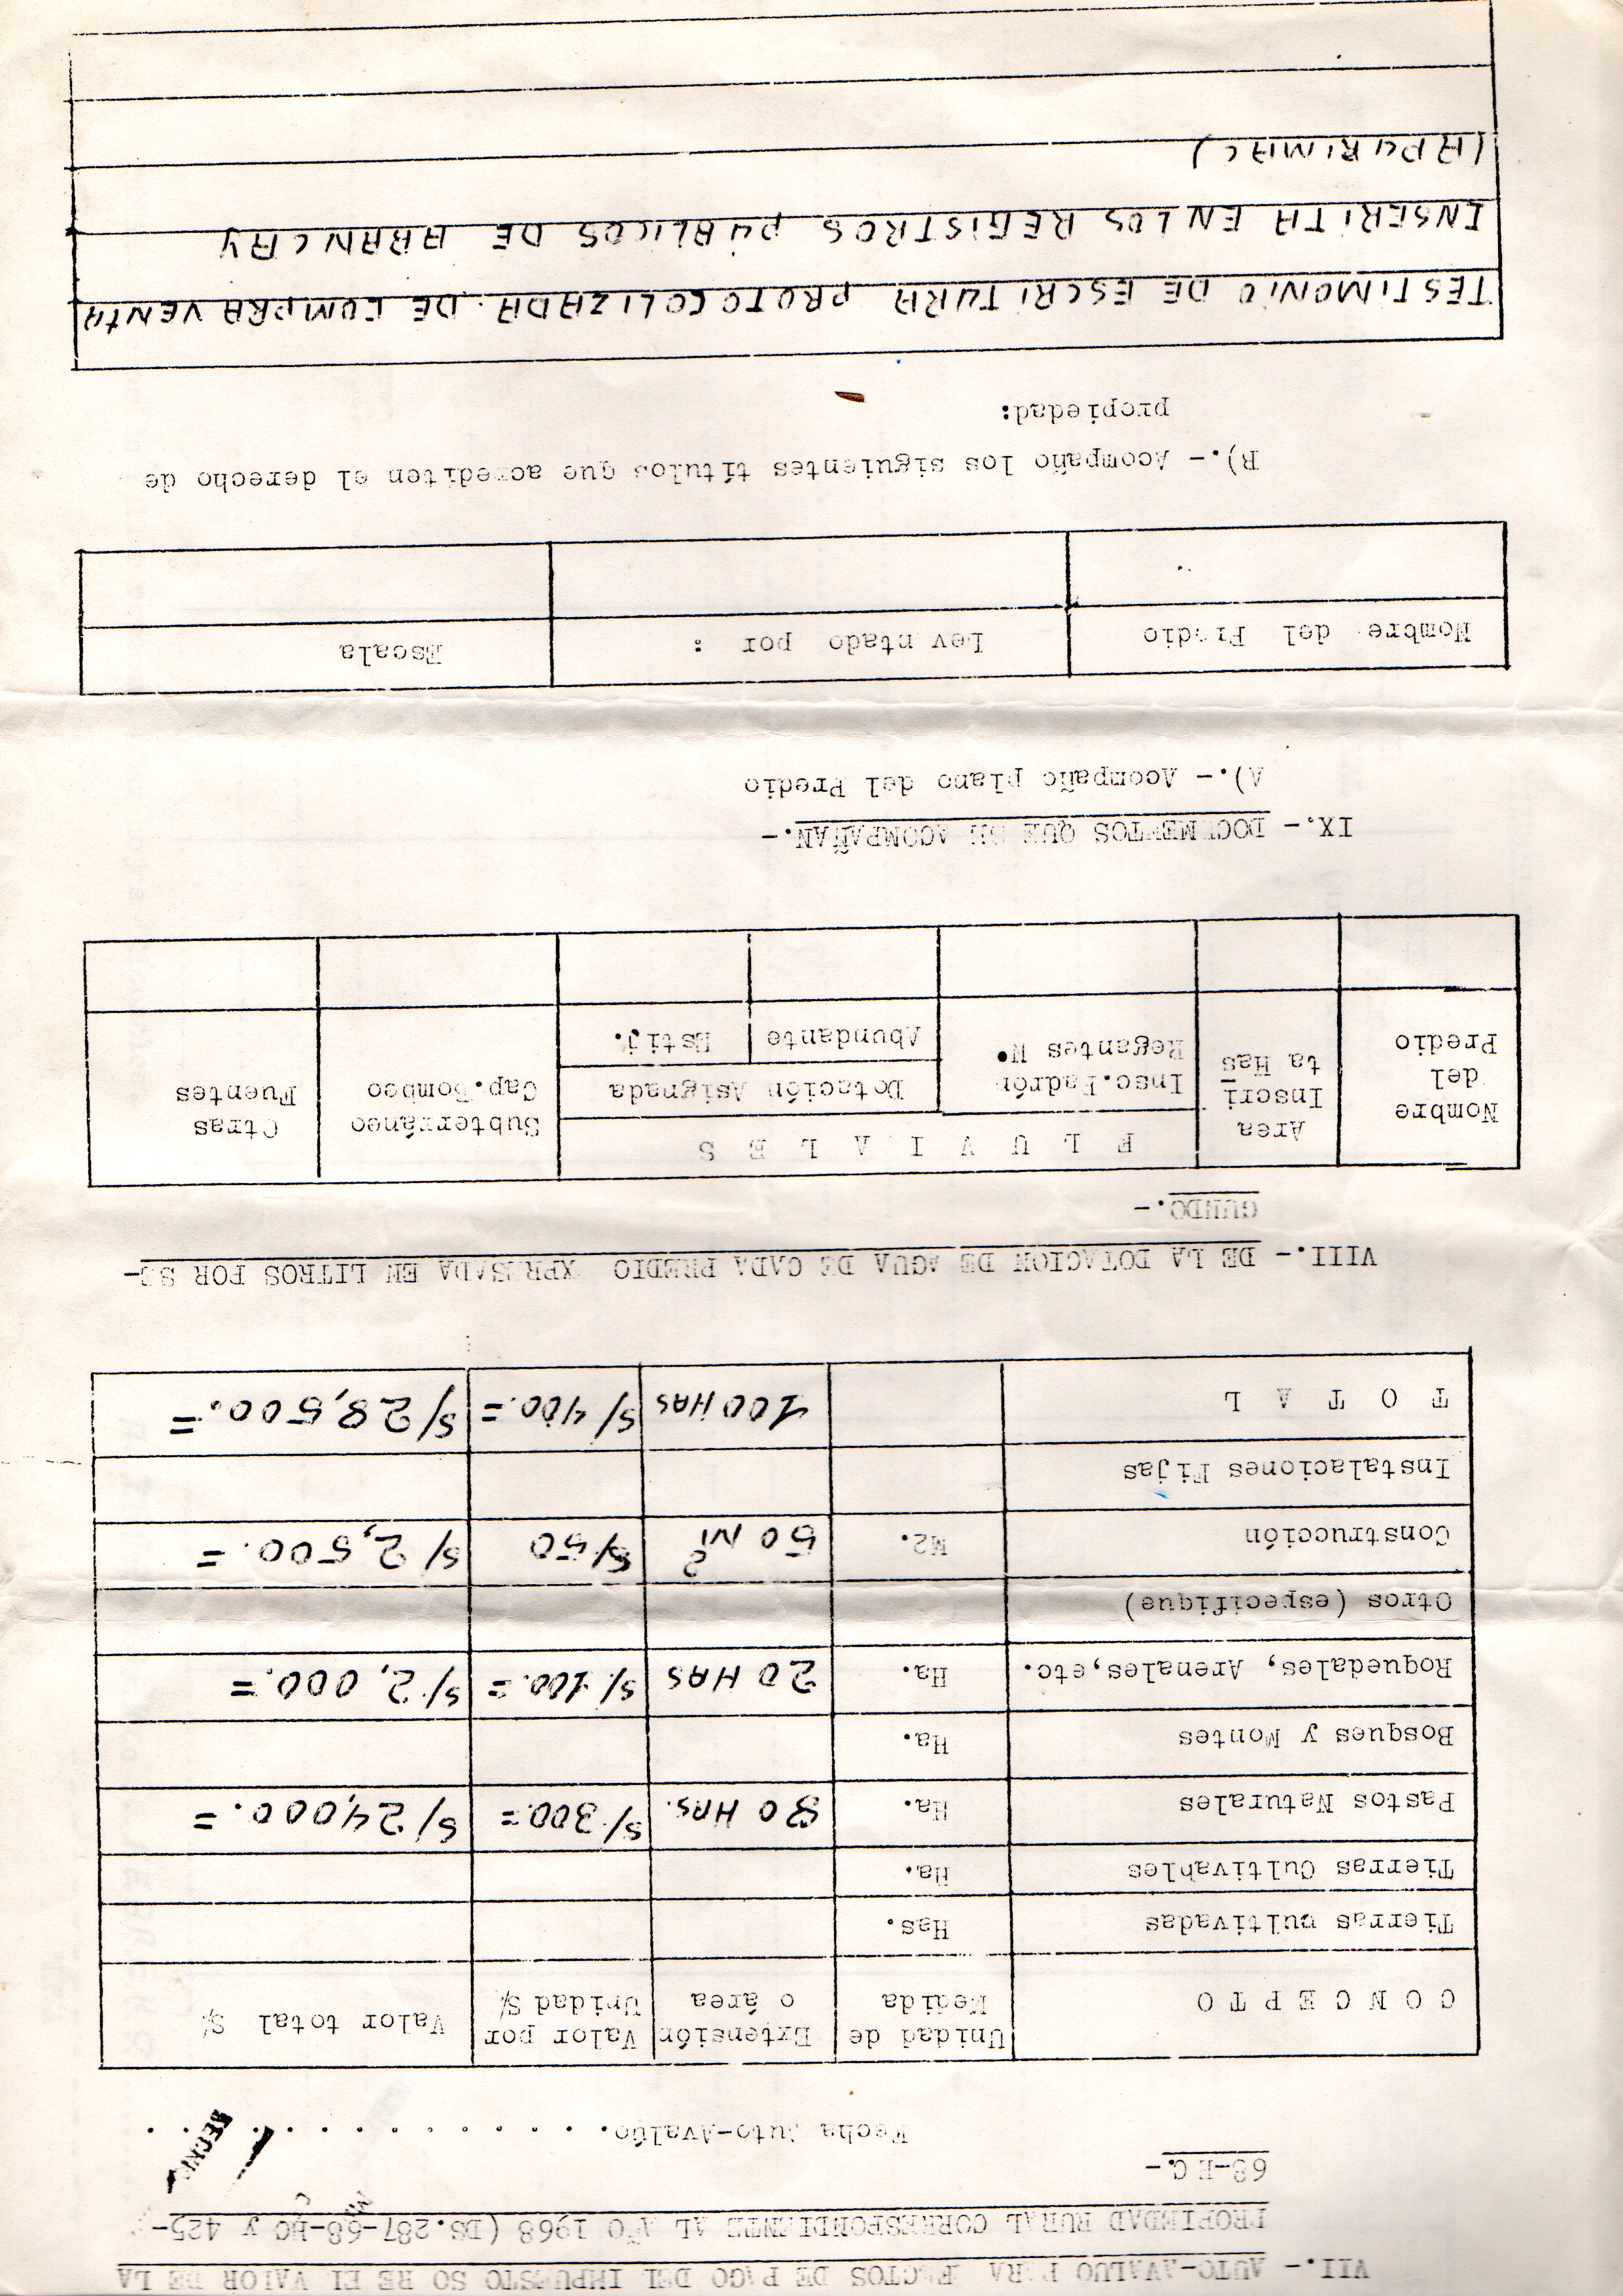 VII.- AUTO-AVALUO PARA EFECTOS DE PAGO DEL IMPUESTO SO RE EL VALOR DE LA
PROPIEDAD RURAL CORRESPONDIENTE AL AÑO 1968 (DS.287-68-HC y 425-
68-H C.-
Fecha Auto-Avalúo. . . . . . . . . . . .
C O N C E P T O Unidad de Medida Extensión o área Valor por Unidad S/ Valor total S/
Tierras cultivadas Has.
Tierras Cultivables Ha.
Pastos Naturales Ha. 80 HAS. S/300.= S/24,000.=
Bosques y Montes Ha.
Roquedales, Arenales,etc. Ha. 20 HAS S/.100.= S/.2,000.=
Otros (especifique)
Construcción M2. 50 M2 S/50 S/2,500.=
Instalaciones Fijas
T O T A L 100 HAS S/400.= S/28,500.=
VIII.- DE LA DOTACION DE AGUA DE CADA PREDIO XPRESADA EN LITROS POR SE-
GUNDO.-
Nombre del Predio Area Inscri ta Has F L U V I A L E S Subterráneo Cap.Bombeo Otras Fuentes
Insc.Padrón Regantes N° Dotación Asignada
Abundante Estij.
IX.- DOCUMENTOS QUE SE ACOMPAÑAN.-
A).- Acompaño plano del Predio
Nombre del Predio Lev ntado por : Escala
B).- Acompaño los siguientes títulos que acrediten el derecho de
propiedad:
TESTIMONIO DE ESCRITURA PROTOCOLIZADA DE COMPRA VENTA
INSERITA EN LOS REGISTROS PUBLICOS DE ABANCAY
(APURIMAC)